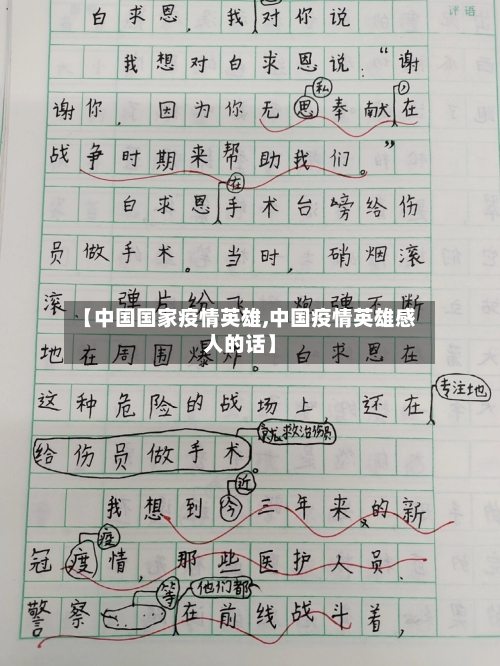 评语
白求恩,我对你说
我想对白求恩说:“谢
谢你,因为你无恩奉献在
私
战争时期来帮助我们。”
在
白求恩手术台嗙给伤
员做手术。当时,硝烟滚
滚,弹片纷飞,炮弹不断
【中国国家疫情英雄,中国疫情英雄感
人的话】
地在周围爆炸。白求恩在
这种危险的战场上,还在
专注地
给伤员做手术。
就救治伤员
我想到今三年来,的新
近
冠疫情,那些医护人员、
疫
警察……在前线战斗着,
等
他们都